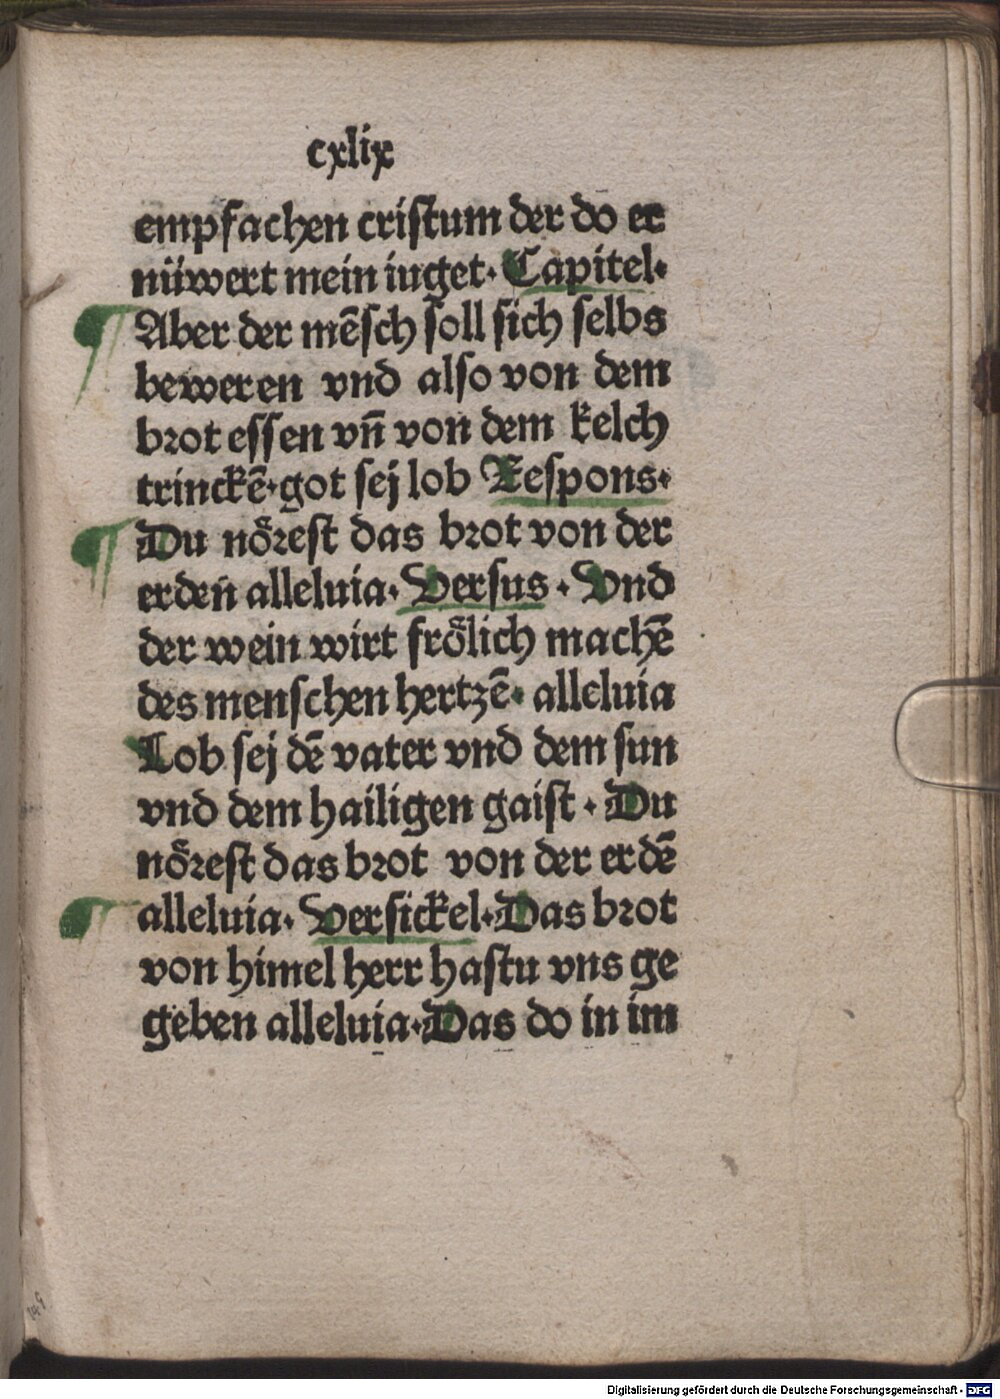 cxlix
empfachen cristum der do er
nüwert mein iuget· Capitel·
Aber der mẽsch soll sich selbs
beweren vnd also von dem
brot essen vñ von dem kelch
trinckẽ·got sej lob Respons·
Du nöꝛest das bꝛot von der
erden alleluia· Versus · Vnd
der wein wirt frölich machẽ
des menschen hertzẽ· alleluia
Lob sej dẽ vater vnd dem sun
vnd dem hailigen gaist · Du
nöꝛest das bꝛot von der erdẽ
alleluia· Versickel·Das bꝛot
von himel herr hastu vns ge
geben alleluia·Das do in im
149
Digitalisierung gefördert durch die Deutsche Forschungsgemeinschaft - DFG